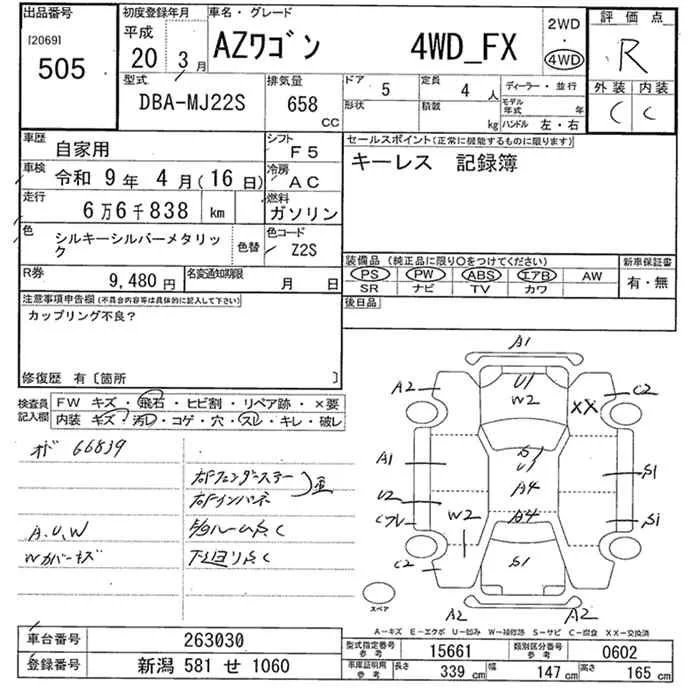 出品番号
[2069]
505
初度登録年月
平成
20年 3月
車名・グレード
AZワゴン 4WD_FX
2WD
・
4WD
評価点
R
外装 内装
C C
型式
DBA-MJ22S
排気量
658
CC
ドア 5
定員 4 人
形状
積載 kg
ディーラー・並行
モデル年式 年
ハンドル 左・右
車歴
自家用
シフト
F5
車検
令和 9年 4月(16日)
冷房
AC
走行
6万6千838 km
燃料
ガソリン
色
シルキーシルバーメタリック
色替
色コード
Z2S
R券
9,480円
名変通知期限
月 日
セールスポイント(正常に機能するものに限ります)
キーレス 記録簿
装備品(純正品に限り○をつけてください)
PS PW ABS エアB AW
SR ナビ TV カワ
新車保証書
有・無
後日品
注意事項申告欄(不具合内容等は具体的に記入して下さい)
カップリング不良?
修復歴 有〔箇所 〕
検査員
記入欄
FW キズ・飛石・ヒビ割・リペア跡・×要
内装 キズ・汚レ・コゲ・穴・スレ・キレ・破レ
66839
A、U、W
A1
A2
U1
W2
XX
C2
S1
U1
A1
A4
S1
U2
W2
A4
S1
C2
S1
A2
A2
スペア
A-キズ E-エクボ U-凹み W-補修跡 S-サビ C-腐食 XX-交換済
車台番号
263030
登録番号
新潟 581 せ 1060
型式指定番号
参考
15661
類別区分番号
参考
0602
車庫証明用
参考
長さ 339 cm
幅 147 cm
高さ 165 cm